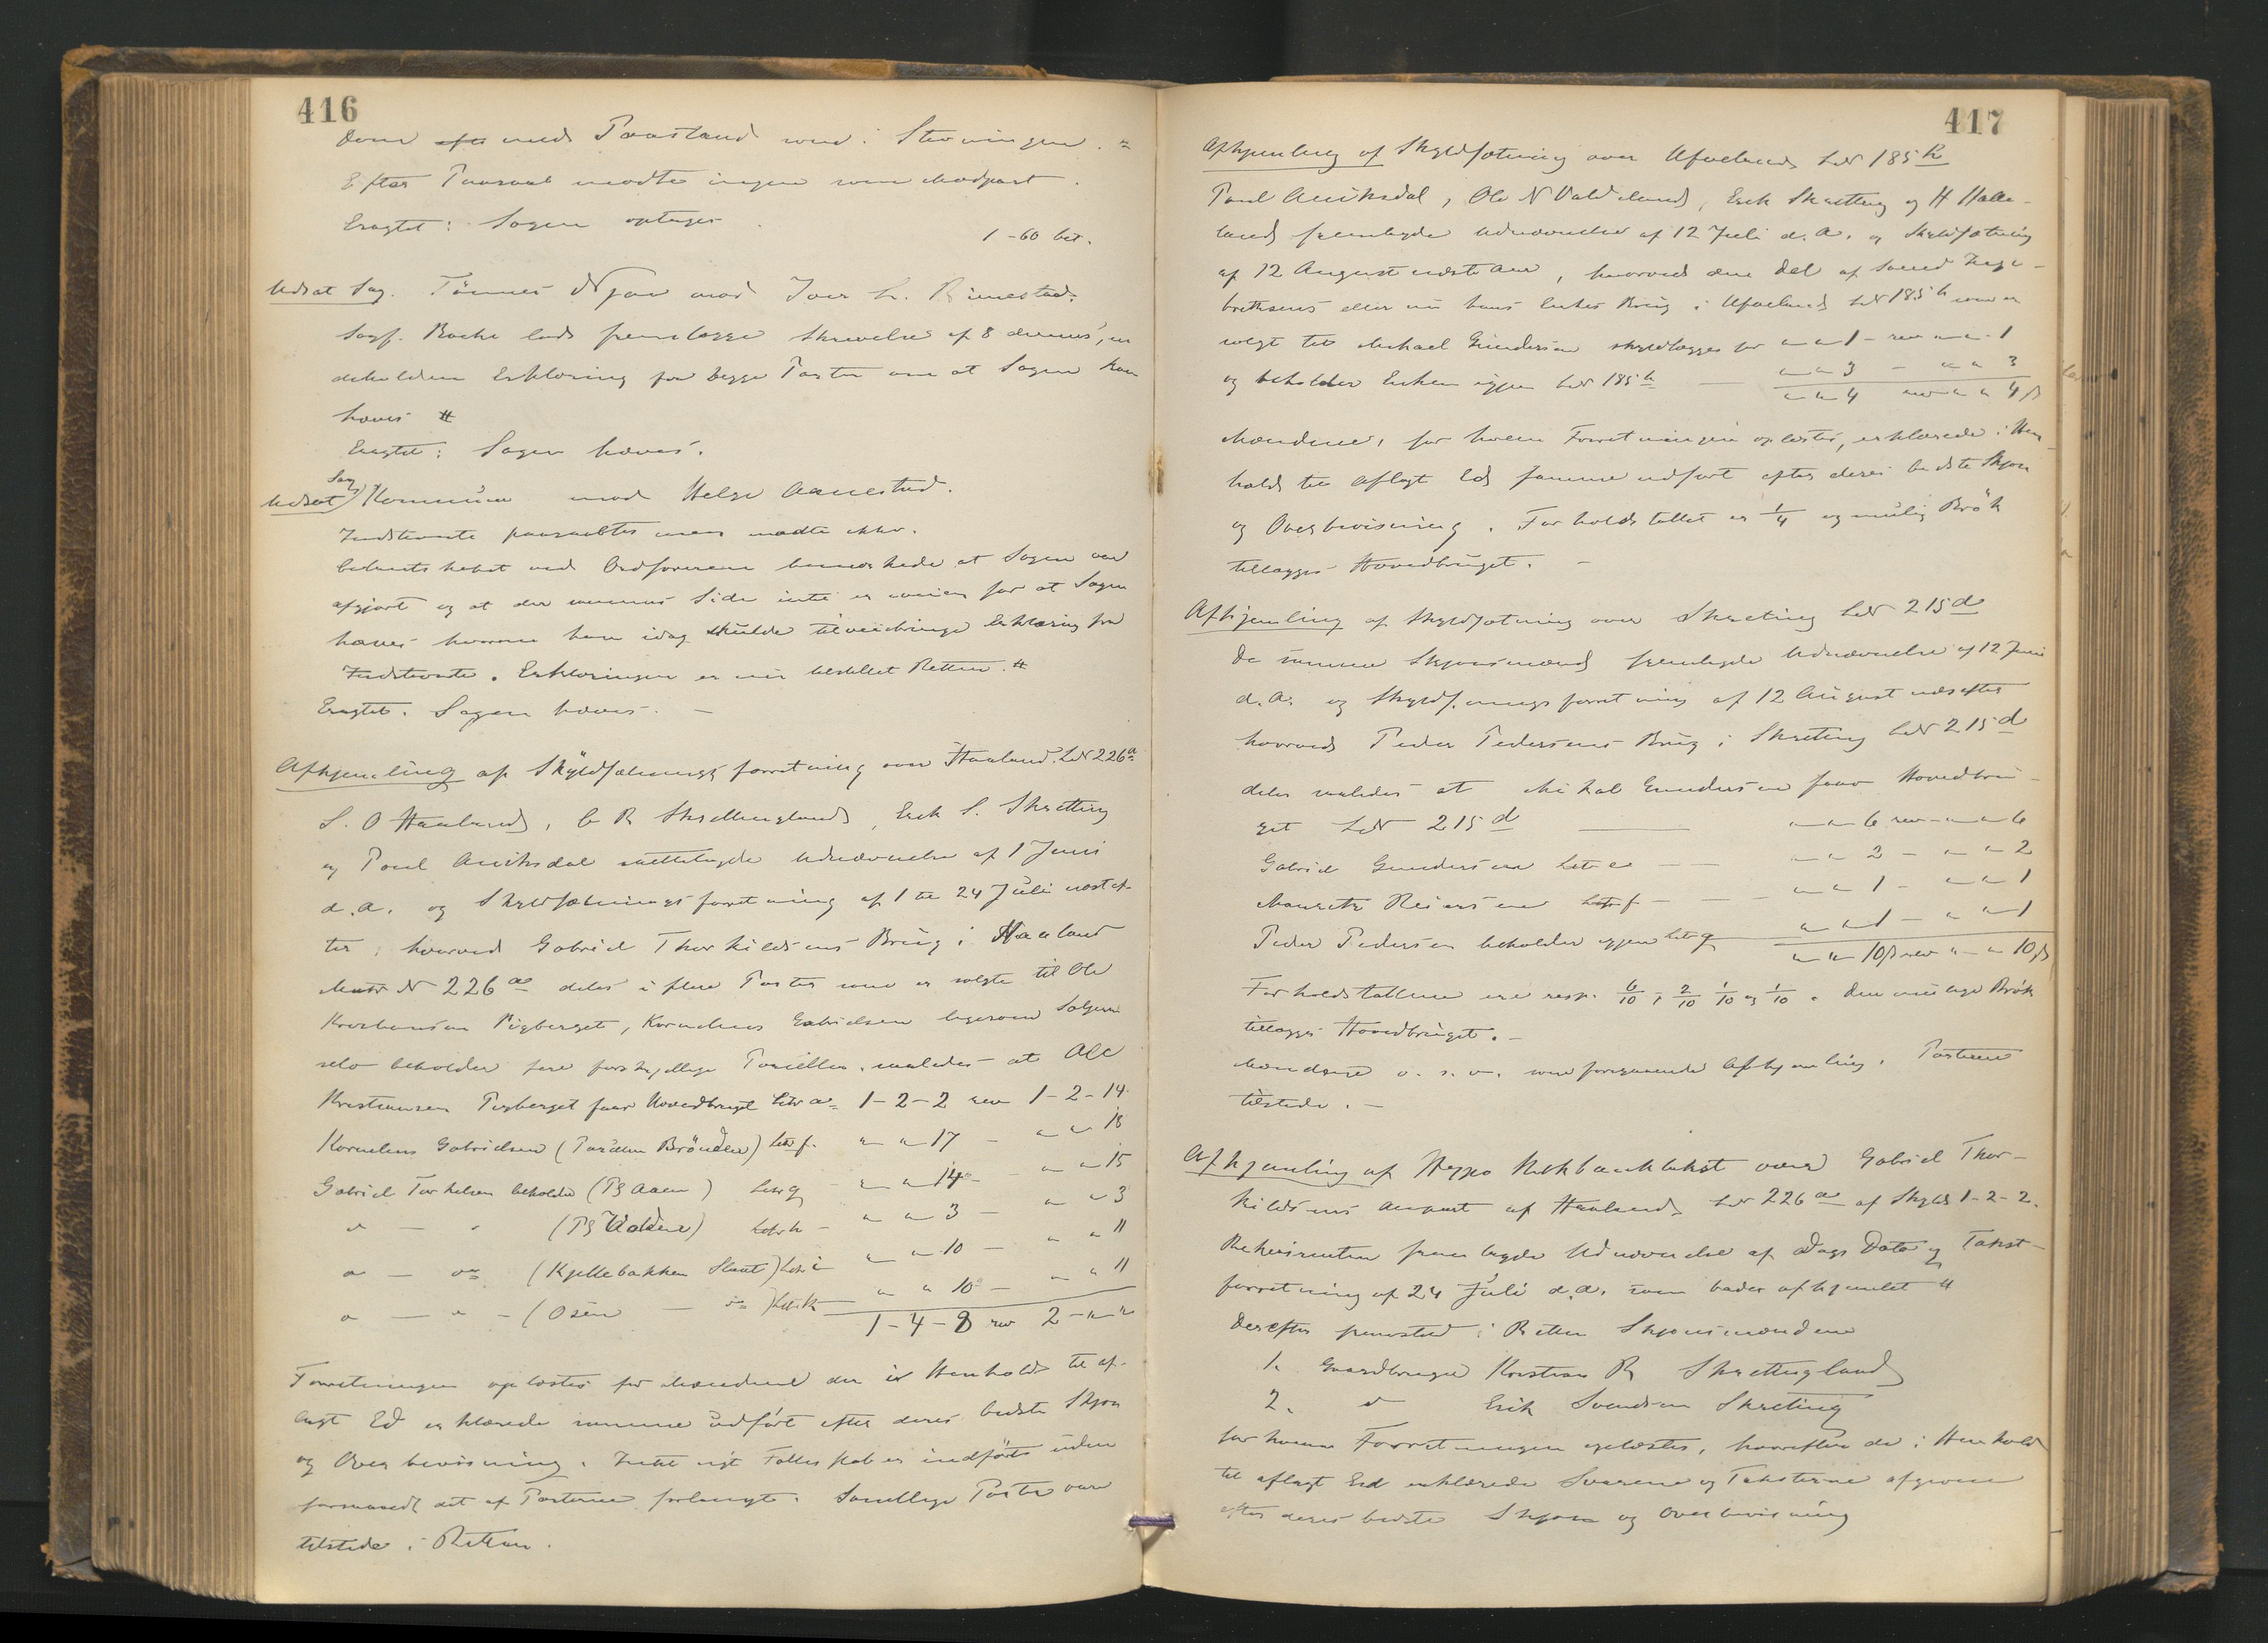 416
Dom efter med Paastand som i Stevningen. "
Efter Paaraab mødte ingen som Modpart.
Eragtet: Sagen optages.
1-60 bet.
Udsat Sag. Tønnes Njaa mod Iver L. Rimestad.
Sagf. Bache lod fremlægge Skrivelse af 8 dennes, in
deholdende Erklæring fra begge Parter om at Sagen kan
hæves "
Eragtet: Sagen hæves.
Udsat Sag Kommune mod Helge Aanestad.
Indstevnte paaraabtes men mødte ikke.
ved Ordføreren bemærkede at Sagen var
afgjort og at der Side intet er iveien for at Sagen
hæves hvorom han idag skulde tilveiebringe Erklæring fra
Indstevnte. Erklæringen er nu tilstillet Retten. "
Eragtet. Sagen hæves. -
Afhjemling af Skyldsætningsforretning over Haaland LN 226 a
S. O Haaland, C R Skrettingland, Erik S. Skretting
og Poul Auiksdal Udnævnelse af 1 Juni
d. a. og Skyldsætningsforretning af 1 til 24 Juli næstef-
ter, hvorved Gabriel Thorkildsens Brug i Haaland
Matr N 226 a deles i flere Parter som er solgte til Ole
Kristiansen Pigberget, Kornelius Gabrielsen ligesom Sælgeren
selv beholder fire forskjellige Parceller, saaledes at Ole
Kristiansen Pigberget faar Hovedbruget Litr a 1-2-2 rev 1-2-14
Kornelius Gabrielsen (Brønden) Litr f. " " 17 - " " 18
Gabriel Torkelsen beholder (Aaen) Litr g " " 14 - " " 15
" - " ( ) Litr h - " " 3 - " " 3
" - " (Kjellebakken Slaat) Litr i " " 10 - " " 11
" - " - (Osen - ) Litr k " " 10 - " " 11
1-4-8 rev 2-"-"
Forretningen oplæstes for Mændene der i Henhold til af-
lagt Ed erklærede samme udført efter deres bedste Skjøn
og Overbevisning. Intet nyt Fællesskab er indført uden
forsaavidt det af Parterne forlangt. Samtlige Parter var
tilstede i Retten.
417
Afhjemling af Skyldsætning over Ueland LN 185 h
Poul Auiksdal, Ole N Valdeland, Erik Skretting og H Haa-
land fremlagde Udnævnelse af 12 Juli d. A. og Skyldsætning
af 12 August næste, hvorved en Del af Svend Inge-
brethsens eller nu hans Enkes Brug i Ueland LN 185 h som er
solgt til Michael Gundersen skyldlægges for " " 1 - rev " " 1
og beholder Enken igjen LN 185 h - " " 3 - " " 3
" " 4 rev " " 4
Mændene, for hvem Forretningen oplæstes, erklærede i Hen
hold til aflagt Ed samme udført efter deres bedste Skjøn
og Overbevisning. Forholdstallet er 1/4 og mulig Brøk
tillægges Hovedbruget. -
Afhjemling af Skyldsætning over Skreting LN 215 d
De samme Skjønsmænd fremlagde Udnævnelse af 12 Juni
d. A. og Skylds.ningsforretning af 12 August næsefter
hvorved Peder Pedersens Brug i Skreting LN 215 d
deles saaledes at Mikal Gundersen faar Hovedbru-
get LN 215 d - " " 6 rev - " " 6
Gabriel Gundersen Litr e - - " " 2 - " " 2
Mauritz Reiersen Litr f - - - " " 1 - " " 1
Peder Pedersen beholder igjen Litr g " " 1 - " " 1
" " 10 rev " " 10
Forholdstallene ere resp. 6/10, 2/10 1/10 og 1/10. Den mulige Brøk
tillægges Hovedbruget. -
Mændene o. s. v. som foregaaende Afhjemling. Parterne
tilstede. -
Afhjemling af Hypothekbanktakst over Gabriel Thor-
kildsens Anpart af Haaland LN 226 a af Skyld 1-2-2.
Rekvirenten fremlagde Udnævnelse af Dags Dato og Takst-
forretning af 24 Juli d. A. som bades afhjemlet "
Derefter fremstod i Retten Skjønsmændene
1. Gaardbruger Kristian R Skrettingland
2. " Erik Svendsen Skreting
for hvem Forretningen oplæstes, hvorefter de i Henhold
til aflagt Eed erklærede Svarene og Taksterne afgivne
efter deres bedste Skjøn og Overbevisning